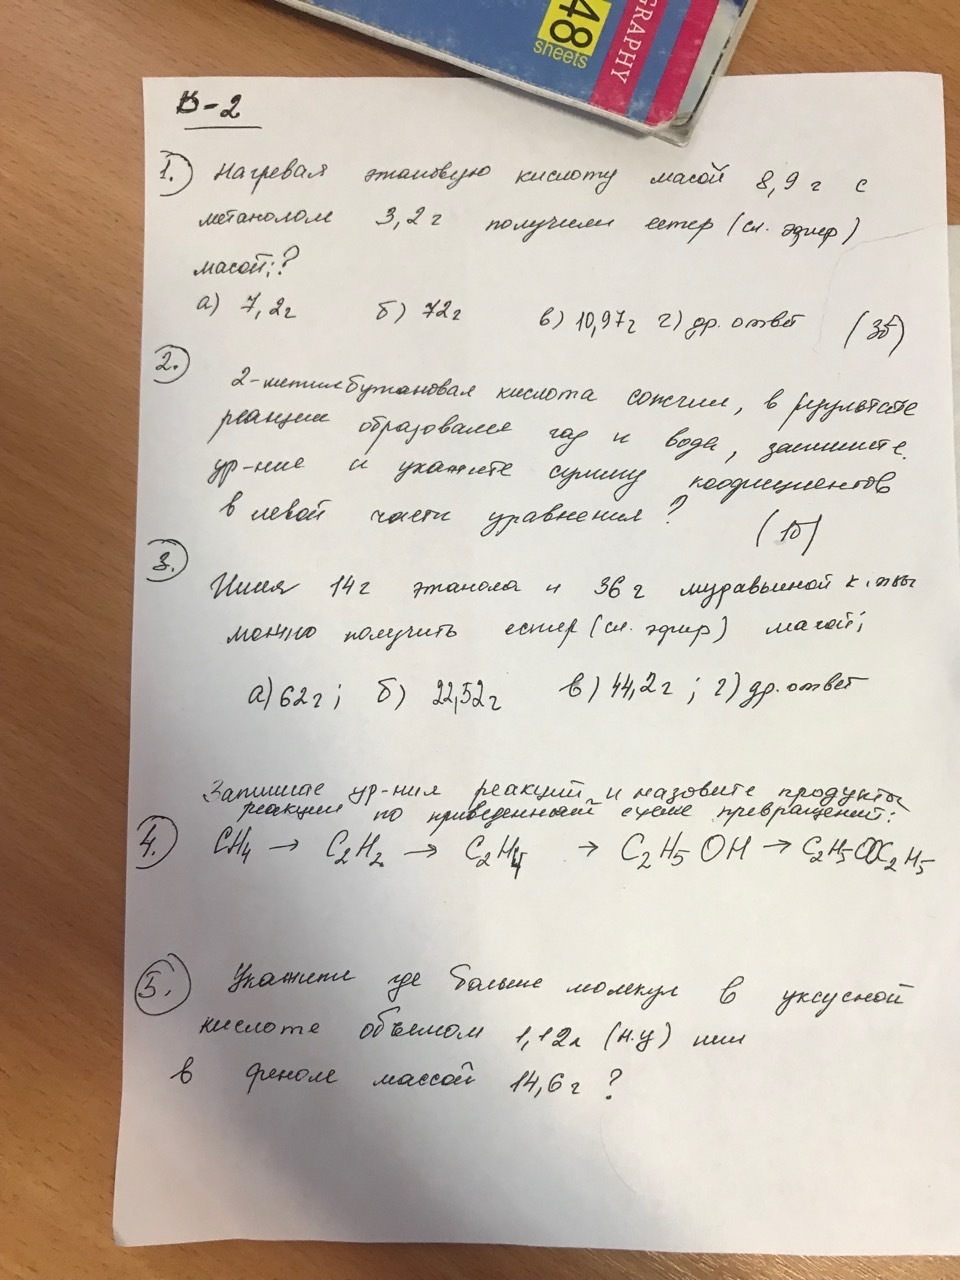 48
sheets
GRAPHY
В-2
1. Нагревая этановую кислоту масой 8,9 г с
метанолом 3,2 г получили естер (сл. эфир)
масой:?
а) 7,2г б) 72г в) 10,97г г) др. ответ (3б)
2. 2-метилбутановая кислота сожгли, в результате
реакции образовался газ и вода, запишите
ур-ние и укажите сумму коофициентов
в левой части уравнения? (1б)
3. Имея 14 г этанола и 36 г муравьиной к.
можно получить естер (сл. эфир) масой;
а) 62г; б) 22,52г в) 44,2г; г) др. ответ
Запишите ур-ния реакций и назовите продукты
реакции по приведенной схеме превращений:
4. CH4 → C2H2 → C2H4 → C2H5OH → C2H5OC2H5
5. Укажите где больше молекул в уксусной
кислоте объемом 1,12л (н.у) или
в феноле массой 14,6г?